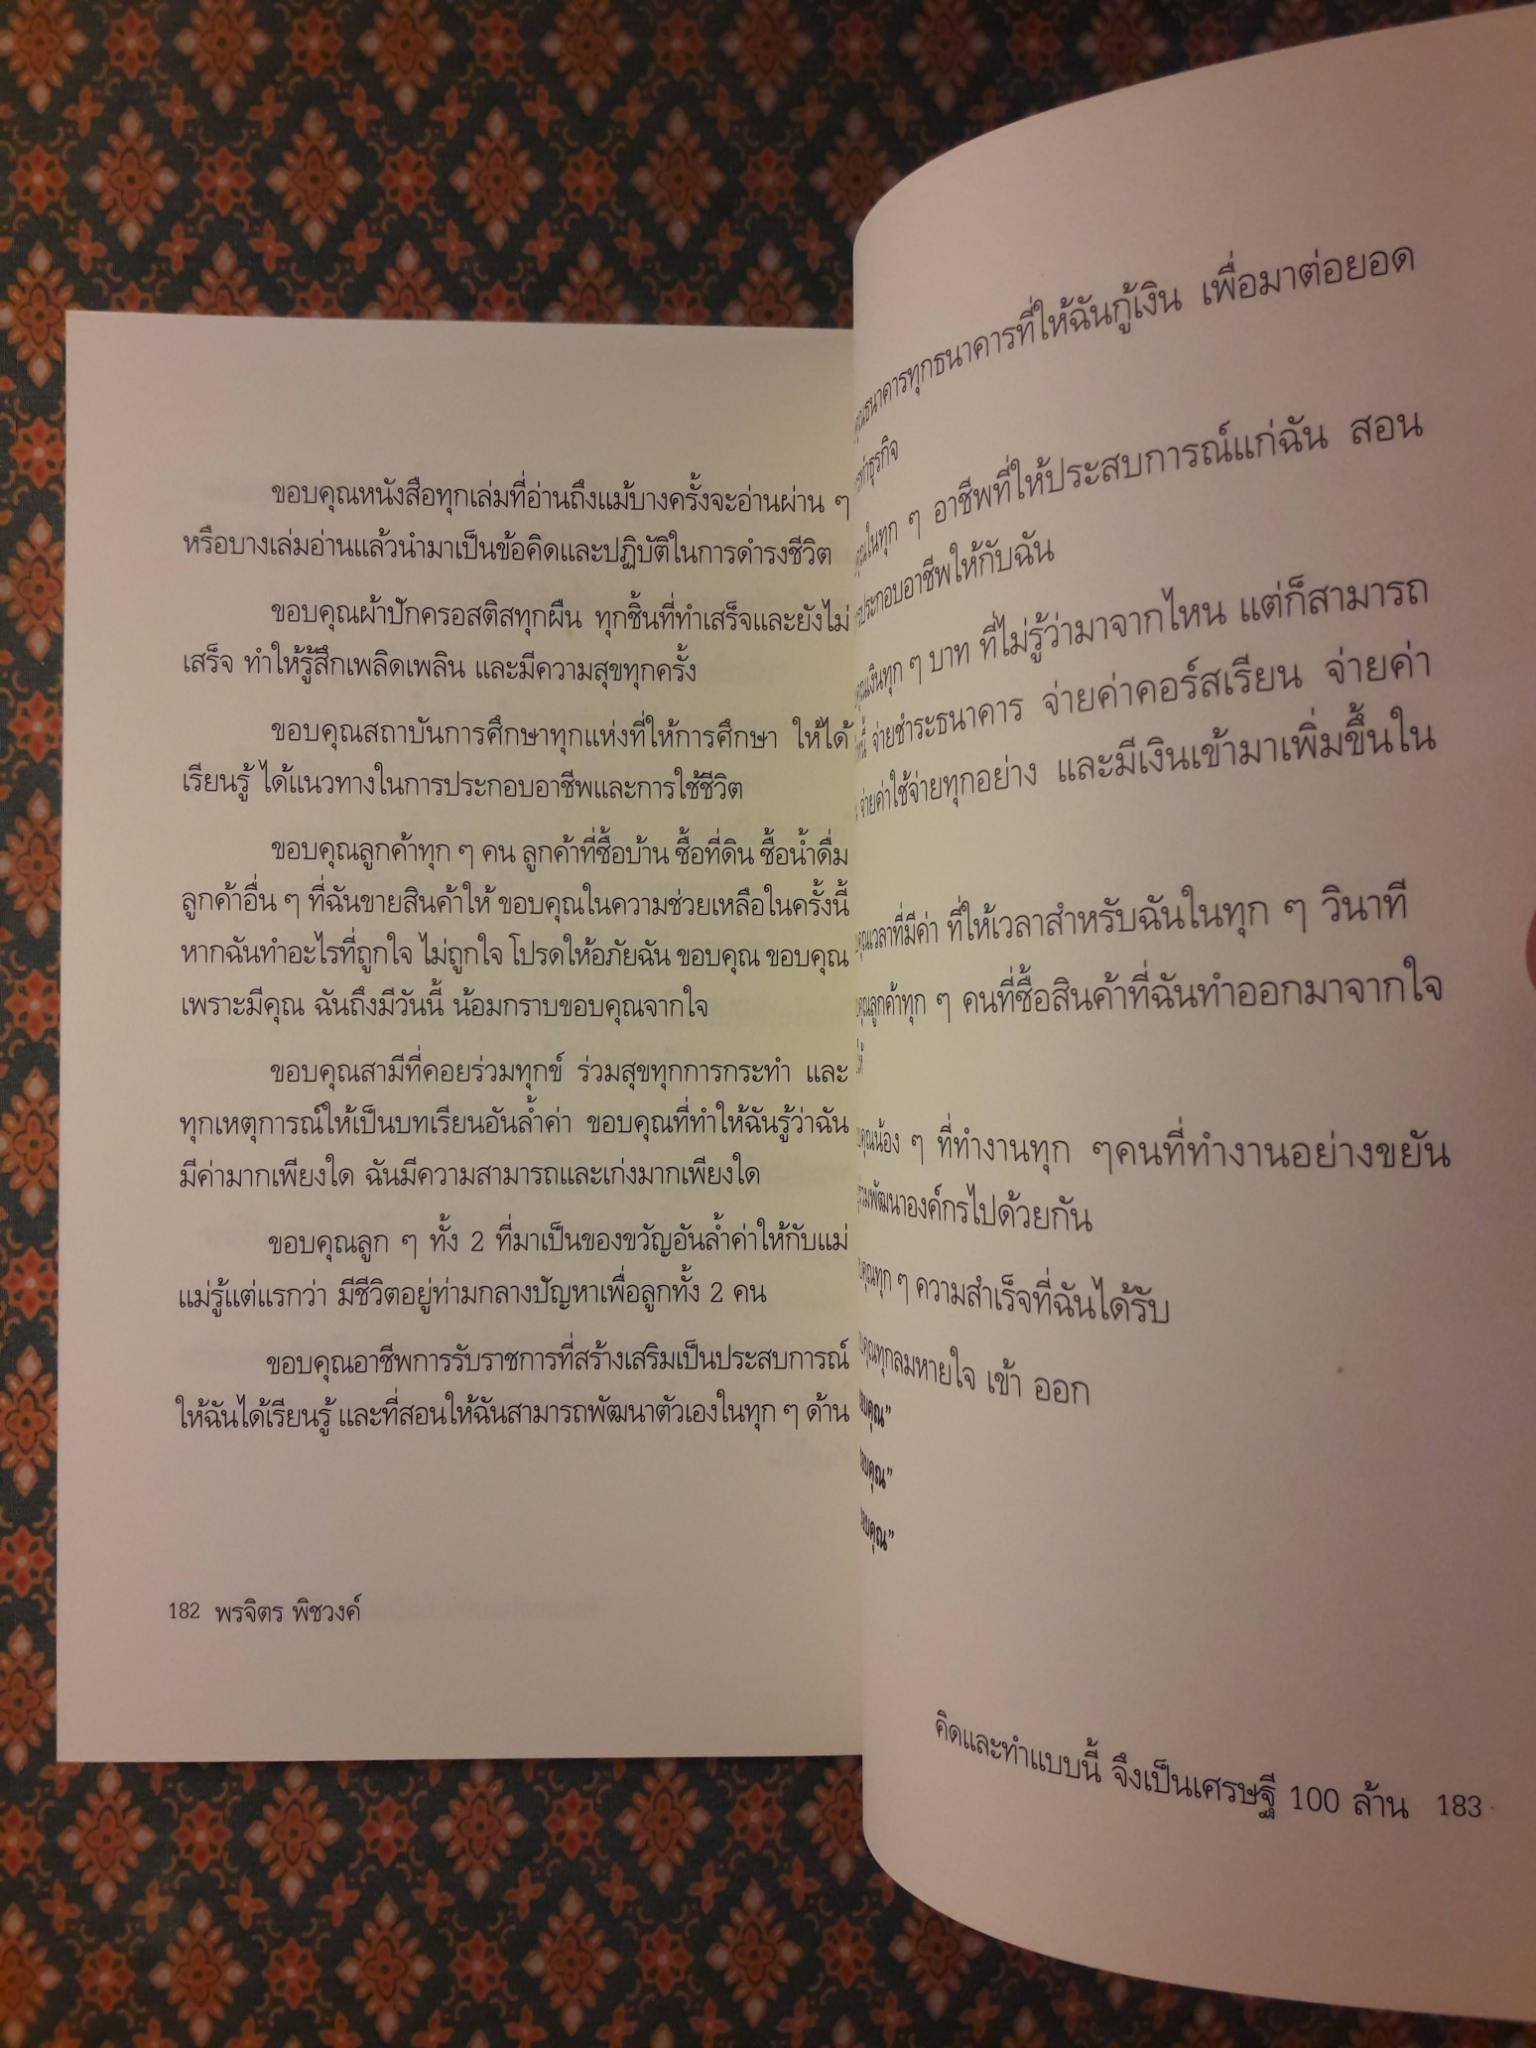 ขอบคุณหนังสือทุกเล่มที่อ่านถึงแม้บางครั้งจะอ่านผ่าน ๆ
หรือบางเล่มอ่านแล้วนำมาเป็นข้อคิดและปฏิบัติในการดำรงชีวิต
ขอบคุณผ้าปักครอสติสทุกผืน ทุกชิ้นที่ทำเสร็จและยังไม่
เสร็จ ทำให้รู้สึกเพลิดเพลิน และมีความสุขทุกครั้ง
ขอบคุณสถาบันการศึกษาทุกแห่งที่ให้การศึกษา ให้ได้
เรียนรู้ ได้แนวทางในการประกอบอาชีพและการใช้ชีวิต
ขอบคุณลูกค้าทุก ๆ คน ลูกค้าที่ซื้อบ้าน ซื้อที่ดิน ซื้อน้ำดื่ม
ลูกค้าอื่น ๆ ที่ฉันขายสินค้าให้ ขอบคุณในความช่วยเหลือในครั้งนี้
หากฉันทำอะไรที่ถูกใจ ไม่ถูกใจ โปรดให้อภัยฉัน ขอบคุณ ขอบคุณ
เพราะมีคุณ ฉันถึงมีวันนี้ น้อมกราบขอบคุณจากใจ
ขอบคุณสามีที่คอยร่วมทุกข์ ร่วมสุขทุกการกระทำ และ
ทุกเหตุการณ์ให้เป็นบทเรียนอันล้ำค่า ขอบคุณที่ทำให้ฉันรู้ว่าฉัน
มีค่ามากเพียงใด ฉันมีความสามารถและเก่งมากเพียงใด
ขอบคุณลูก ๆ ทั้ง 2 ที่มาเป็นของขวัญอันล้ำค่าให้กับแม่
แม่รู้แต่แรกว่า มีชีวิตอยู่ท่ามกลางปัญหาเพื่อลูกทั้ง 2 คน
ขอบคุณอาชีพการรับราชการที่สร้างเสริมเป็นประสบการณ์
ให้ฉันได้เรียนรู้ และที่สอนให้ฉันสามารถพัฒนาตัวเองในทุก ๆ ด้าน
182 พรจิตร พิชวงค์
ธนาคารทุกธนาคารที่ให้ฉันกู้เงิน เพื่อมาต่อยอด
ธุรกิจ
ในทุก ๆ อาชีพที่ให้ประสบการณ์แก่ฉัน สอน
ประกอบอาชีพให้กับฉัน
เงินทุก ๆ บาท ที่ไม่รู้ว่ามาจากไหน แต่ก็สามารถ
จ่ายชำระธนาคาร จ่ายค่าคอร์สเรียน จ่ายค่า
จ่ายค่าใช้จ่ายทุกอย่าง และมีเงินเข้ามาเพิ่มขึ้นใน
เวลาที่มีค่า ที่ให้เวลาสำหรับฉันในทุก ๆ วินาที
คุณลูกค้าทุก ๆ คนที่ซื้อสินค้าที่ฉันทำออกมาจากใจ
คุณน้อง ๆ ที่ทำงานทุก ๆคนที่ทำงานอย่างขยัน
พัฒนาองค์กรไปด้วยกัน
คุณทุก ๆ ความสำเร็จที่ฉันได้รับ
คุณทุกลมหายใจ เข้า ออก
อบคุณ”
อบคุณ”
อบคุณ”
คิดและทำแบบนี้ จึงเป็นเศรษฐี 100 ล้าน 183